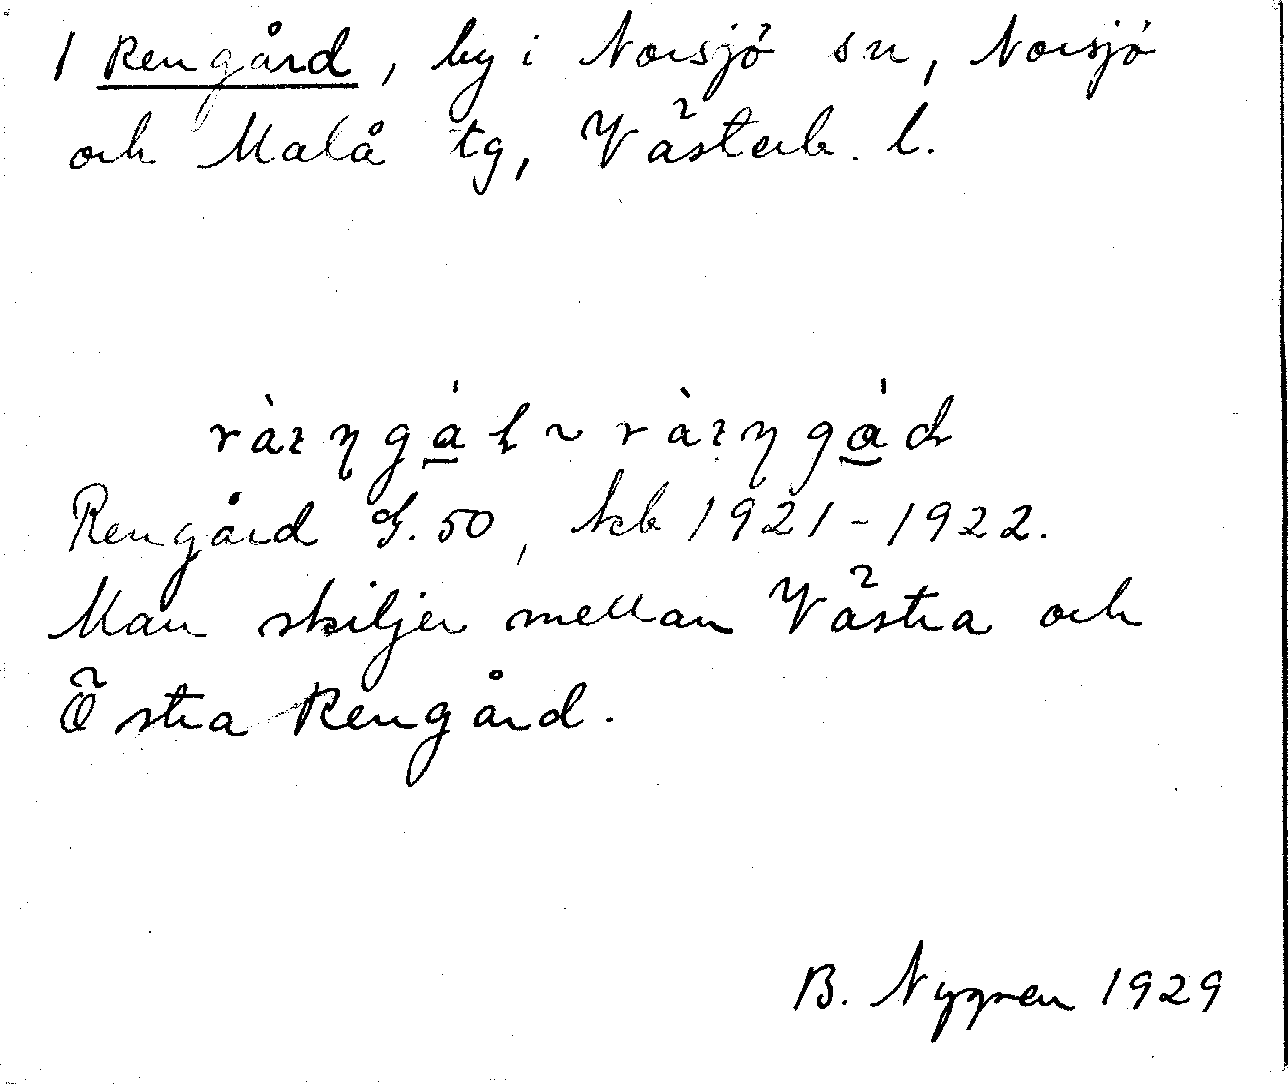 1 Rengård, by i Norsjö sn, Norsjö
och Malå tg, Västerb. l.
ràɪŋga̲ɫ ~ ràɪŋga̲d
Rengård G. 50, kb 1921-1922.
Man skiljer mellan Västra och
Östra Rengård.
B. Nygren 1929